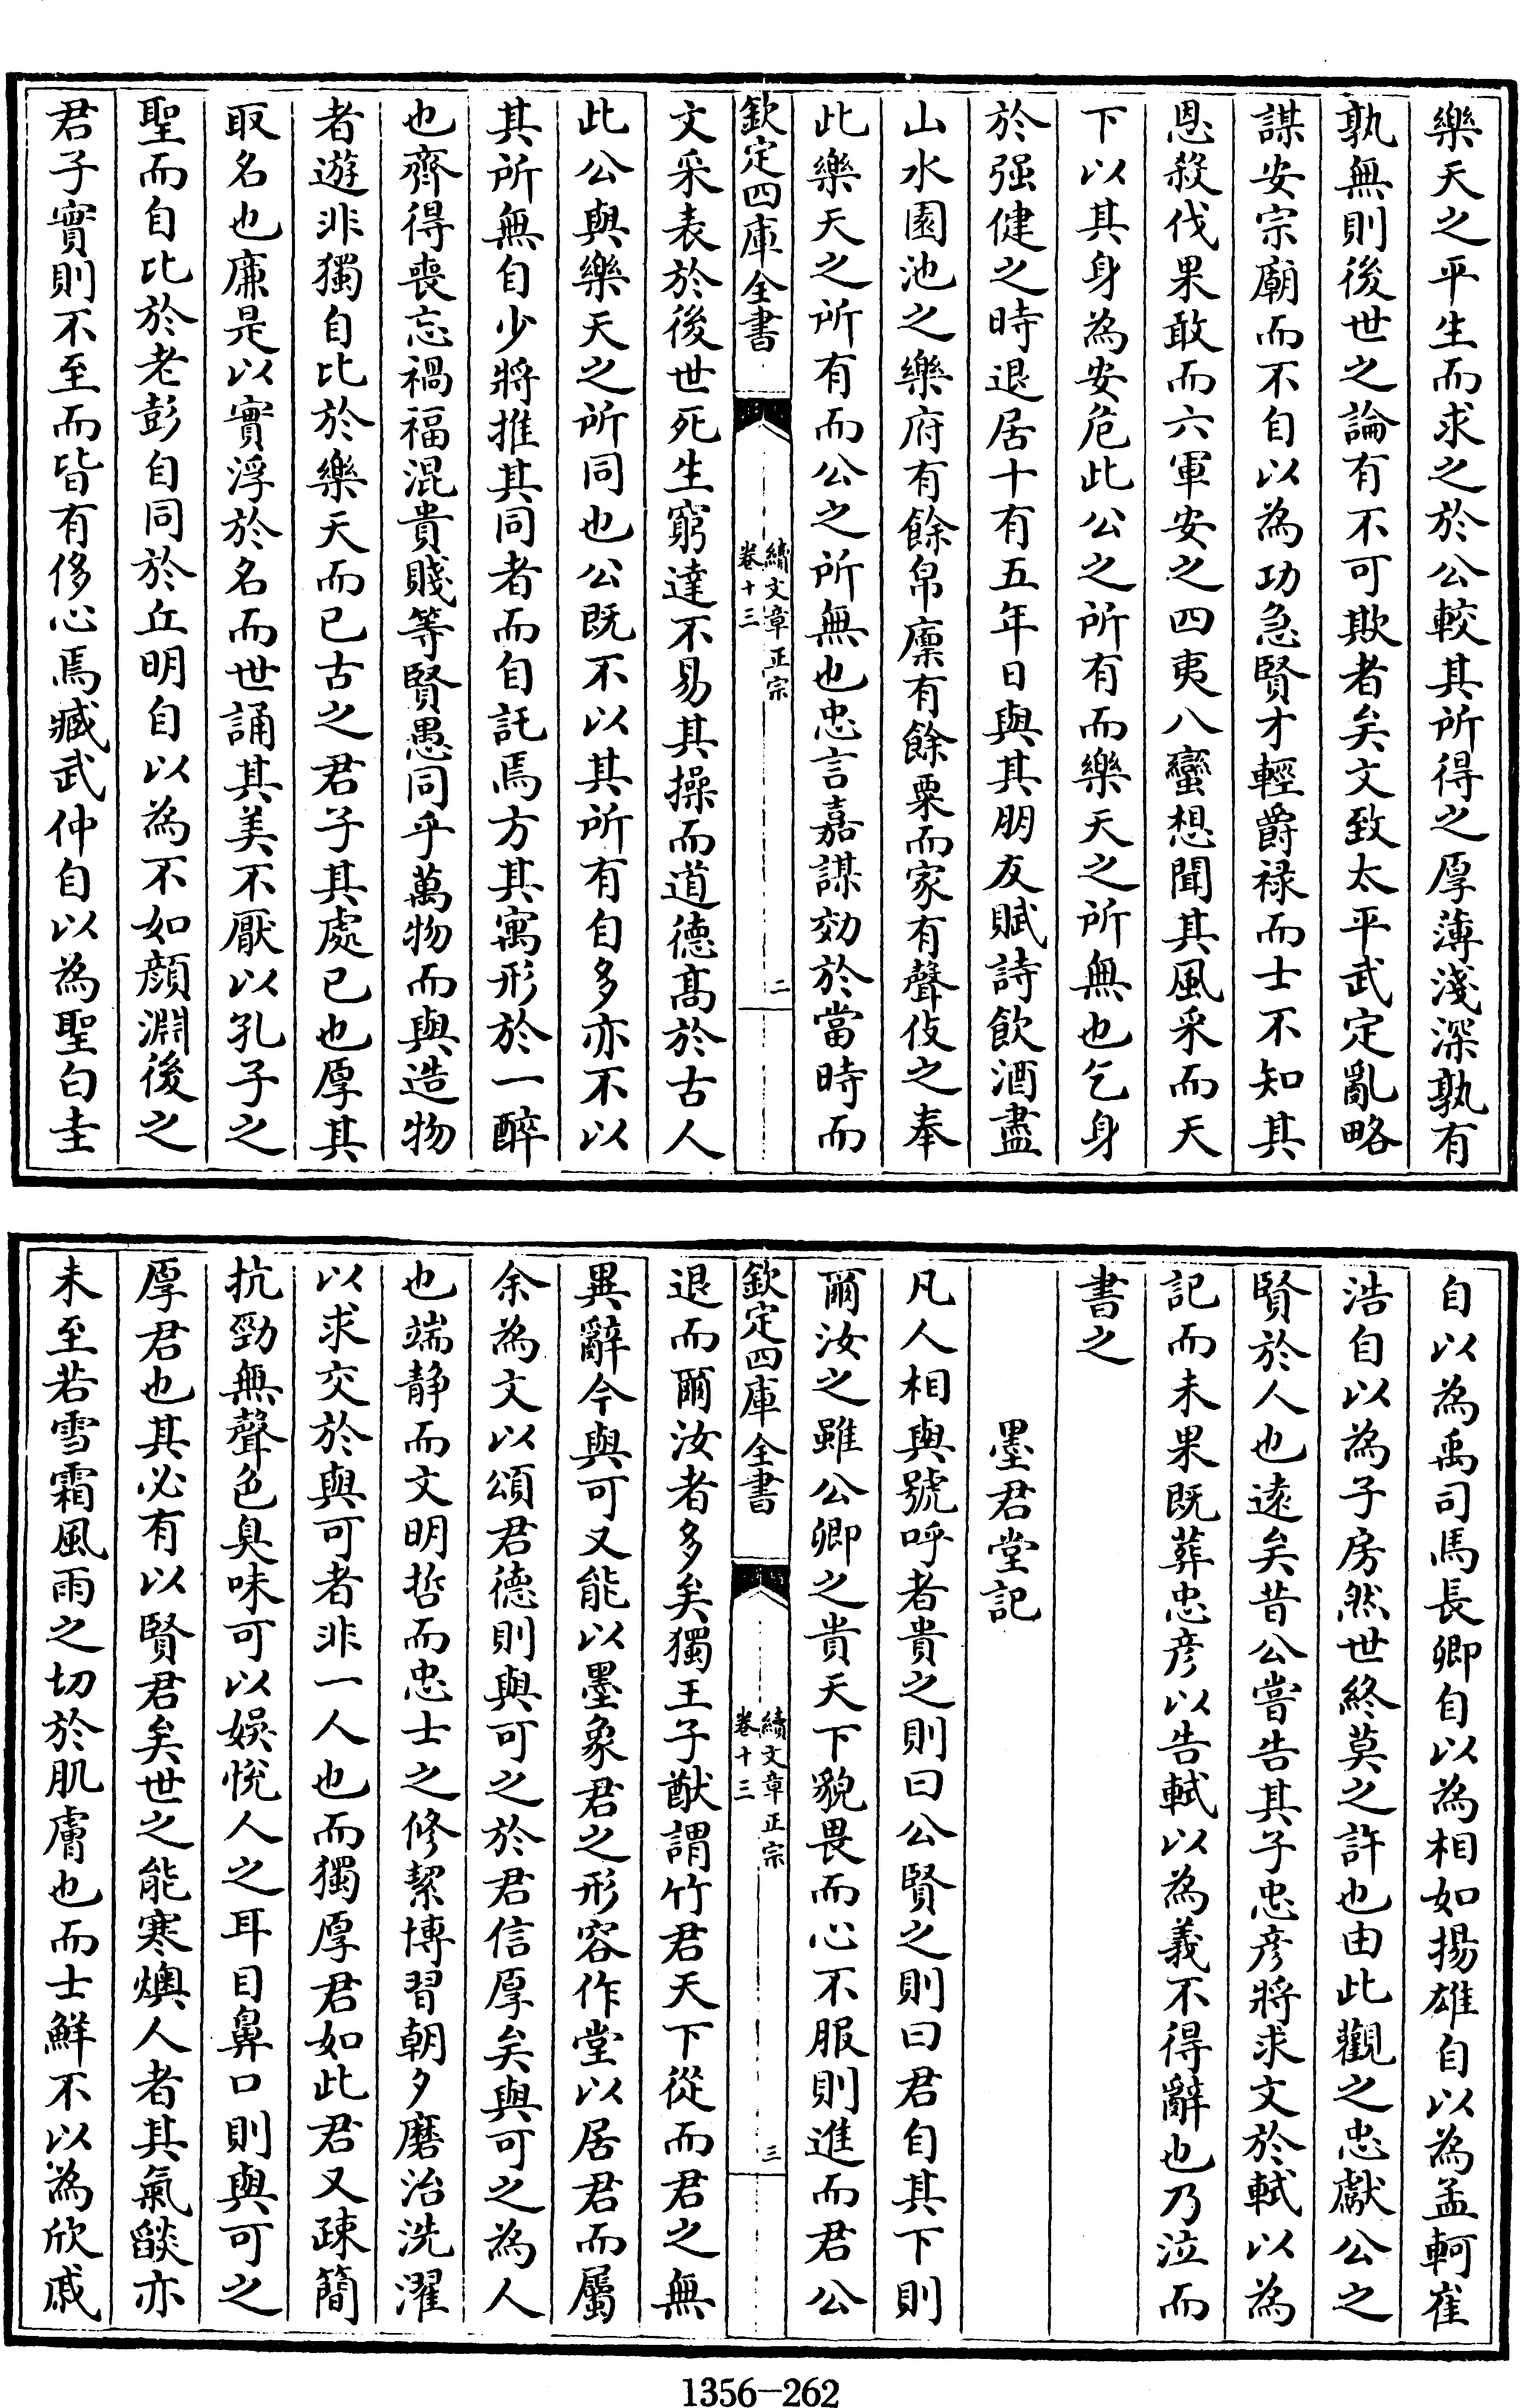 樂天之平生而求之於公較其所得之厚薄淺深孰有
孰無則後世之論有不可欺者矣文致太平武定亂略
謀安宗廟而不自以為功急賢才輕爵禄而士不知其
恩殺伐果敢而六軍安之四夷八蠻想聞其風采而天
下以其身為安危此公之所有而樂天之所無也乞身
於强健之時退居十有五年日與其朋友賦詩飲酒盡
山水園池之樂府有餘帛廩有餘粟而家有聲伎之奉
此樂天之所有而公之所無也忠言嘉謀効於當時而
欽定四庫全書
續文章正宗
卷十三
二
文采表於後世死生窮達不易其操而道德髙於古人
此公與樂天之所同也公既不以其所有自多亦不以
其所無自少將推其同者而自託焉方其寓形於一醉
也齊得喪忘禍福混貴賤等賢愚同乎萬物而與造物
者遊非獨自比於樂天而已古之君子其處已也厚其
取名也廉是以實浮於名而世誦其美不厭以孔子之
聖而自比於老彭自同於丘明自以為不如顔淵後之
君子實則不至而皆有侈心焉臧武仲自以為聖白圭
自以為禹司馬長卿自以為相如揚雄自以為孟軻崔
浩自以為子房然世終莫之許也由此觀之忠獻公之
賢於人也遠矣昔公嘗告其子忠彦將求文於軾以為
記而未果既葬忠彦以告軾以為義不得辭也乃泣而
書之
墨君堂記
凡人相與號呼者貴之則曰公賢之則曰君自其下則
爾汝之雖公卿之貴天下貌畏而心不服則進而君公
欽定四庫全書
續文章正宗
卷十三
三
退而爾汝者多矣獨王子猷謂竹君天下從而君之無
異辭今與可又能以墨象君之形容作堂以居君而屬
余為文以頌君德則與可之於君信厚矣與可之為人
也端静而文明哲而忠士之修絜博習朝夕磨治洗濯
以求交於與可者非一人也而獨厚君如此君又疎簡
抗勁無聲色臭味可以娛悦人之耳目鼻口則與可之
厚君也其必有以賢君矣世之能寒燠人者其氣燄亦
未至若雪霜風雨之切於肌膚也而士鮮不以為欣戚
1356-262